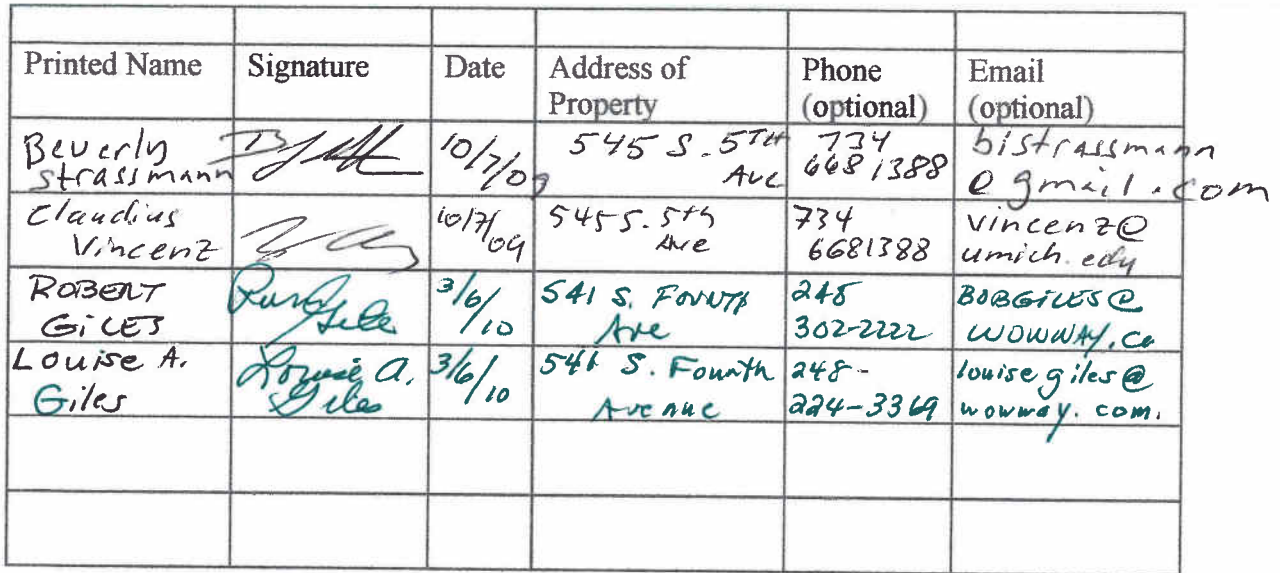 Printed Name Signature Date Address of Property Phone (optional) Email (optional)
Beverly Strassmann 10/7/09 545 S. 5TH Ave 734 6681388 bistrassmann@gmail.com
Claudius Vincenz 10/7/09 545 S. 5th Ave 734 6681388 vincenz@umich.edu
ROBERT GILES 3/6/10 541 S. FOURTH Ave 248 302-2222 BOBGILES@WOWWAY.CO
Louise A. Giles Louise A. Giles 3/6/10 541 S. Fourth Avenue 248-224-3369 louisegiles@wowway.com.